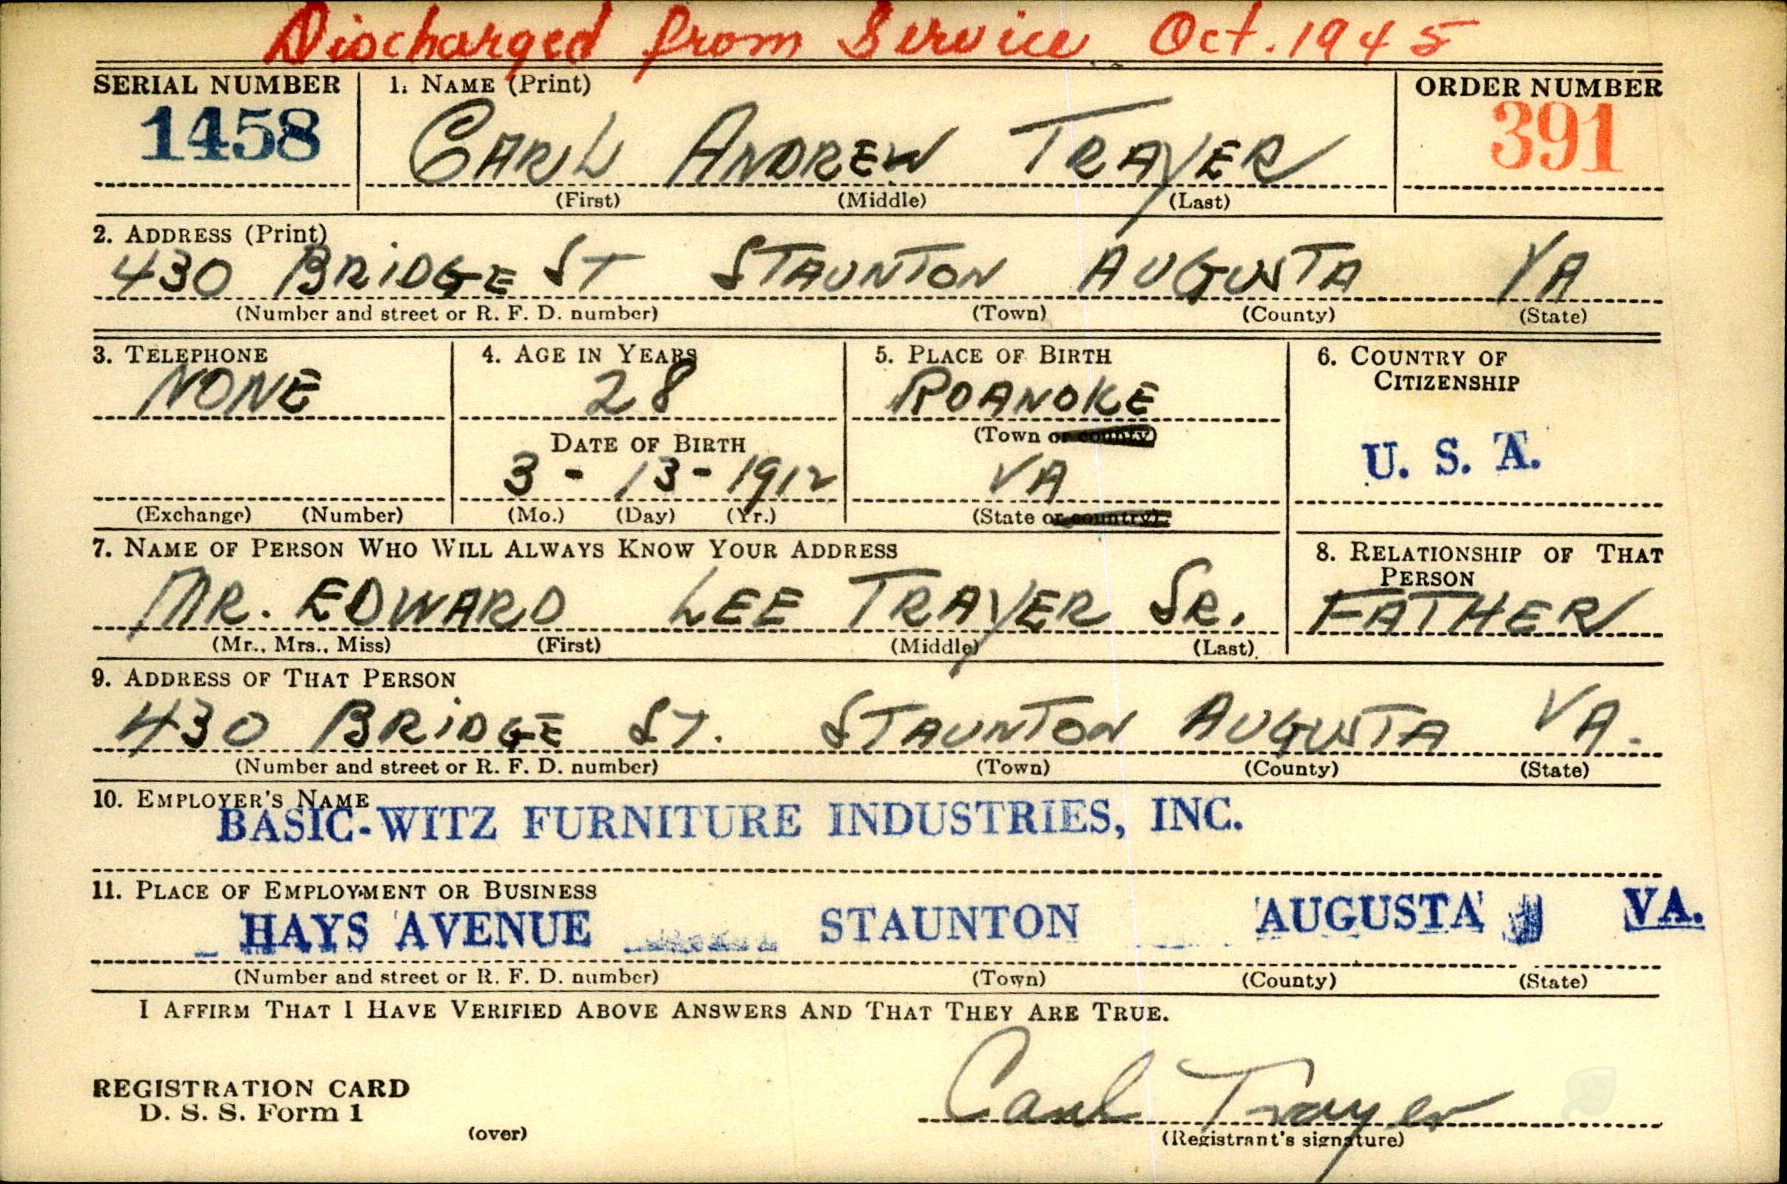 Discharged from Service Oct. 1945
SERIAL NUMBER 1. NAME (Print) ORDER NUMBER
1458 CARL ANDREW TRAYER 391
(First) (Middle) (Last)
2. ADDRESS (Print)
430 BRIDGE ST STAUNTON AUGUSTA VA
(Number and street or R. F. D. number) (Town) (County) (State)
3. TELEPHONE 4. AGE IN YEARS 5. PLACE OF BIRTH 6. COUNTRY OF
CITIZENSHIP
NONE 28 ROANOKE
DATE OF BIRTH (Town or county)
3 - 13 - 1912 VA U. S. A.
(Exchange) (Number) (Mo.) (Day) (Yr.) (State or country)
7. NAME OF PERSON WHO WILL ALWAYS KNOW YOUR ADDRESS 8. RELATIONSHIP OF THAT
PERSON
MR. EDWARD LEE TRAYER SR. FATHER
(Mr., Mrs., Miss) (First) (Middle) (Last)
9. ADDRESS OF THAT PERSON
430 BRIDGE ST. STAUNTON AUGUSTA VA.
(Number and street or R. F. D. number) (Town) (County) (State)
10. EMPLOYER'S NAME
BASIC-WITZ FURNITURE INDUSTRIES, INC.
11. PLACE OF EMPLOYMENT OR BUSINESS
HAYS AVENUE STAUNTON AUGUSTA VA.
(Number and street or R. F. D. number) (Town) (County) (State)
I AFFIRM THAT I HAVE VERIFIED ABOVE ANSWERS AND THAT THEY ARE TRUE.
REGISTRATION CARD
D. S. S. Form 1 Carl Trayer
(over) (Registrant's signature)